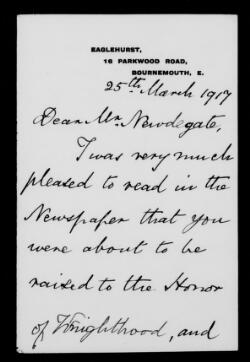 EAGLEHURST,
16 PARKWOOD ROAD,
BOURNEMOUTH, E.
25th March 1917
Dear Mr. Newdegate,
I was very much
pleased to read in the
Newspaper that you
were about to be
raised to the Honor
of Knighthood, and